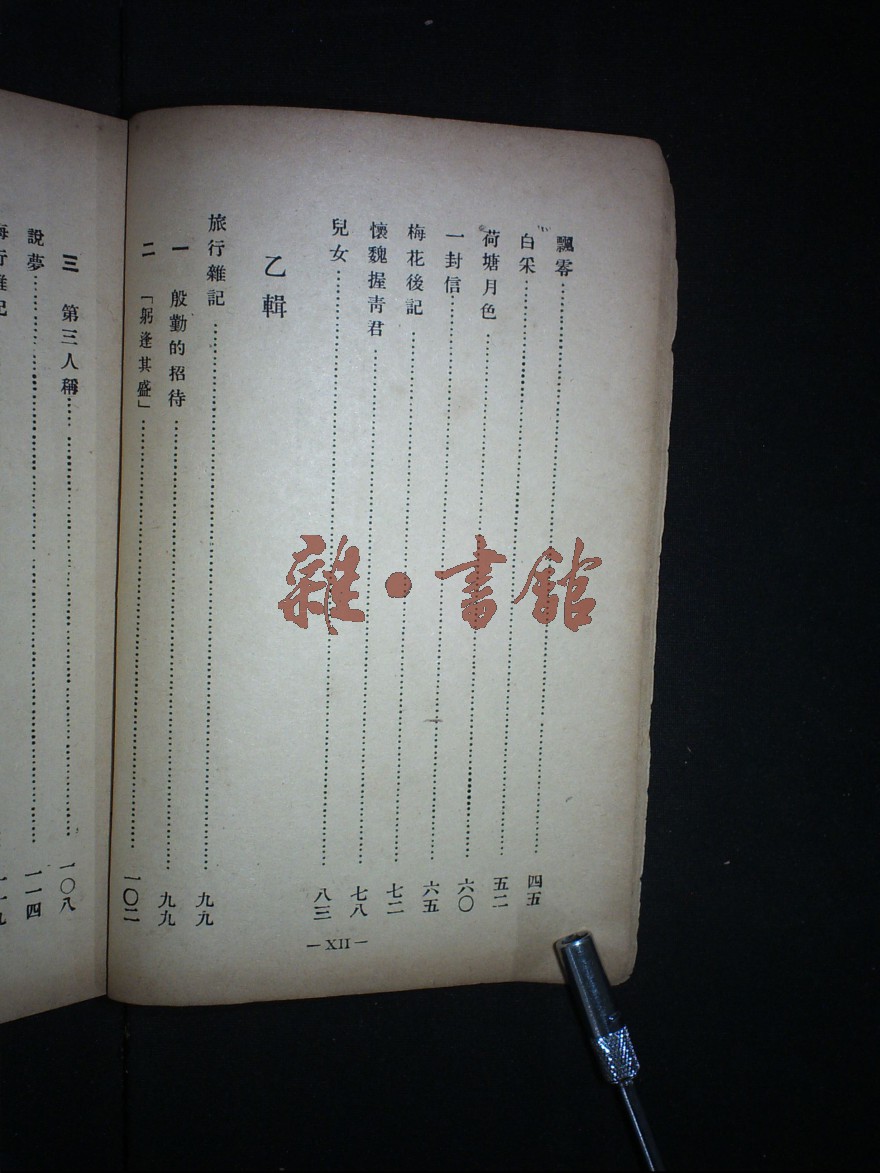 飄零……四五
白采……五二
荷塘月色……六〇
一封信……六五
梅花後記……七二
懷魏握青君……七八
兒女……八三
乙輯
旅行雜記……九九
一 殷勤的招待……九九
二 「躬逢其盛」……一〇二
— XII —
三 第三人稱……一〇八
說夢……一一四
雜·書館